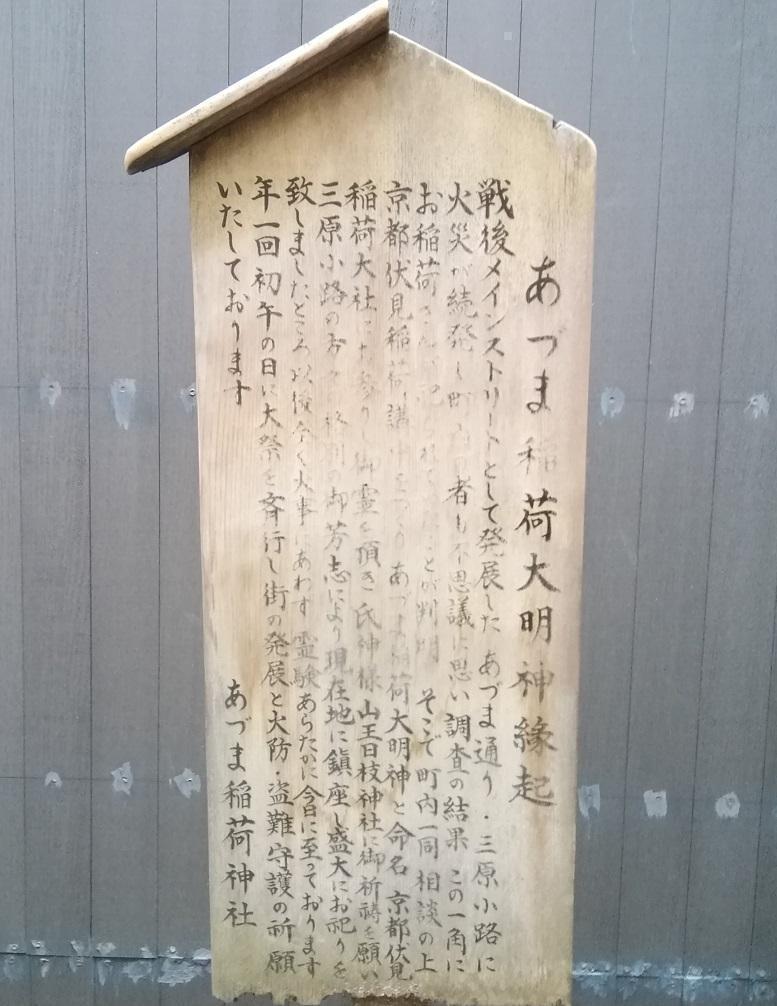 あづま稲荷大明神縁起
戦後メインストリートとして発展した あづま通り・三原小路に
火災が続発し町内の者も不思議に思い 調査の結果 この一角に
お稲荷さんが祀られて ことが判明 そこで町内一同相談の上
京都伏見稲荷講中をつくり あづま稲荷大明神と命名 京都伏見
稲荷大社にお参りし御霊を頂き 氏神様 山王日枝神社に御祈祷を願い
三原小路の 格別の御芳志により 現在地に鎮座し盛大にお祀りを
致しましたところ 以後全く火事にあわず 霊験あらたかに今日に至っております
年一回初午の日に大祭を斉行し街の発展と火防・盗難守護の祈願
いたしております
あづま稲荷神社